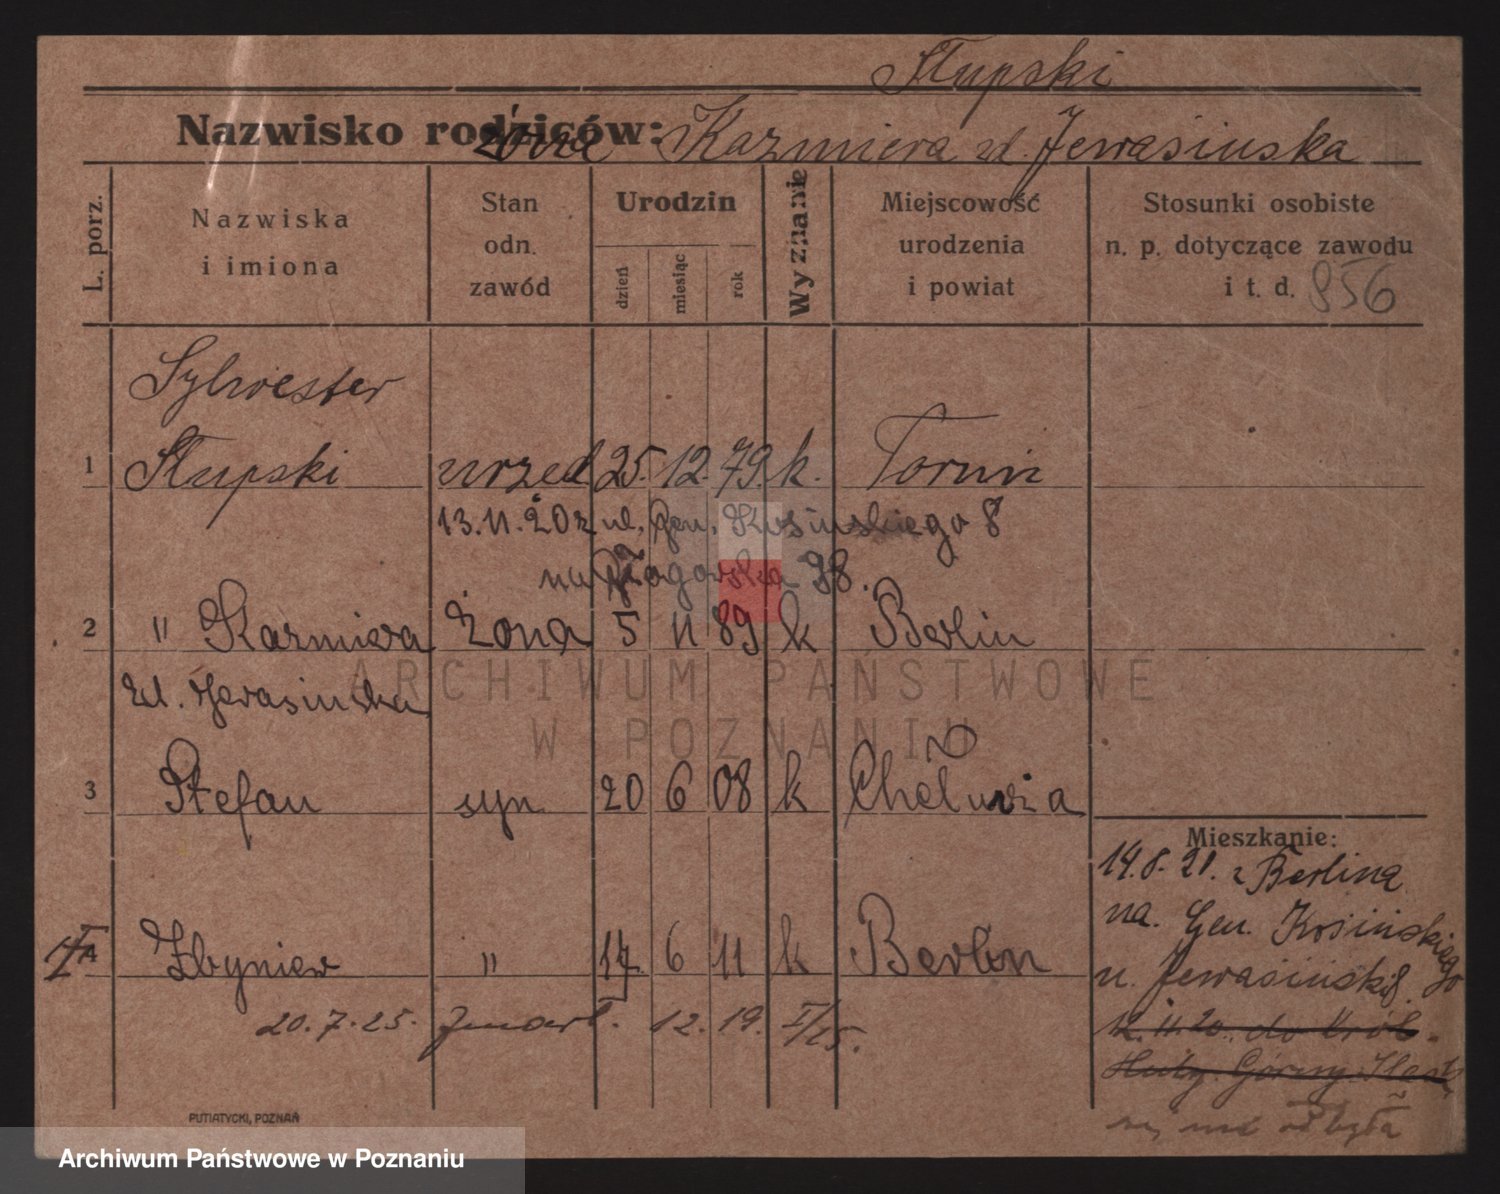 Słupski
Nazwisko rodziców: Kazmiera zd. Jerrasińska
żona
L. porz.
Nazwiska
i imiona
Stan
odn.
zawód
Urodzin
dzień
miesiąc
rok
Wyznanie
Miejscowość
urodzenia
i powiat
Stosunki osobiste
n. p. dotyczące zawodu
i t. d. 856
Sylwester
1 Słupski urzęd 25. 12. 79. k. Toruń
13.11.20 z ul. Gen. Kosińskiego 8
na Głogowska 98.
2 " Kazmiera żona 5 11 89 k Berlin
zd. Jerasinska
3 Stefan syn 20 6 08 k
Mieszkanie:
14.8.21. z Berlina
na. Gen. Kosińskiego
u. Jerrasiński 8.
Zbyniew " 17 6 11 k Berlin
20.7.25. 12. 19. I/25.
12.11.20. do Król.
Huty. Górny Śląsk
odbyła
PUTIATYCKI, POZNAŃ
ARCHIWUM PAŃSTWOWE
W POZNANIU
Archiwum Państwowe w Poznaniu